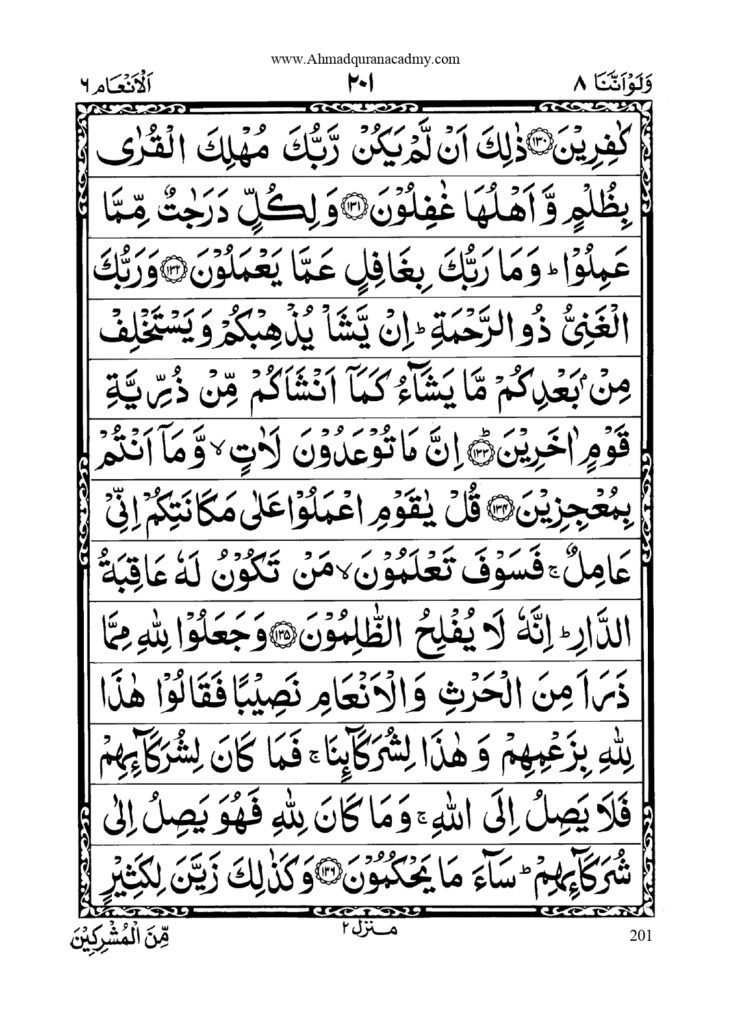 www.Ahmadquranacadmy.com
وَلَوْاَنَّنَا ٨ ٢٠١ اَلْاَنْعَام ٦
كٰفِرِيْنَ ١٣٠ ذٰلِكَ اَنْ لَّمْ يَكُنْ رَّبُّكَ مُهْلِكَ الْقُرٰى
بِظُلْمٍ وَّاَهْلُهَا غٰفِلُوْنَ ١٣١ وَلِكُلٍّ دَرَجٰتٌ مِّمَّا
عَمِلُوْا ؕ وَمَا رَبُّكَ بِغَافِلٍ عَمَّا يَعْمَلُوْنَ ١٣٢ وَرَبُّكَ
الْغَنِىُّ ذُو الرَّحْمَةِ ؕ اِنْ يَّشَاْ يُذْهِبْكُمْ وَيَسْتَخْلِفْ
مِنْۢ بَعْدِكُمْ مَّا يَشَآءُ كَمَاۤ اَنْشَاَكُمْ مِّنْ ذُرِّيَّةِ
قَوْمٍ اٰخَرِيْنَ ؕ ١٣٣ اِنَّ مَا تُوْعَدُوْنَ لَاٰتٍ ۙ وَّمَاۤ اَنْتُمْ
بِمُعْجِزِيْنَ ١٣٤ قُلْ يٰقَوْمِ اعْمَلُوْا عَلٰى مَكَانَتِكُمْ اِنِّىْ
عَامِلٌ ۚ فَسَوْفَ تَعْلَمُوْنَ ۙ مَنْ تَكُوْنُ لَهٗ عَاقِبَةُ
الدَّارِ ؕ اِنَّهٗ لَا يُفْلِحُ الظّٰلِمُوْنَ ١٣٥ وَجَعَلُوْا لِلّٰهِ مِمَّا
ذَرَاَ مِنَ الْحَرْثِ وَالْاَنْعَامِ نَصِيْبًا فَقَالُوْا هٰذَا
لِلّٰهِ بِزَعْمِهِمْ وَهٰذَا لِشُرَكَآئِنَا ۚ فَمَا كَانَ لِشُرَكَآئِهِمْ
فَلَا يَصِلُ اِلَى اللّٰهِ ۚ وَمَا كَانَ لِلّٰهِ فَهُوَ يَصِلُ اِلٰى
شُرَكَآئِهِمْ ؕ سَآءَ مَا يَحْكُمُوْنَ ١٣٦ وَكَذٰلِكَ زَيَّنَ لِكَثِيْرٍ
201 منزل ٢ مِّنَ الْمُشْرِكِيْنَ